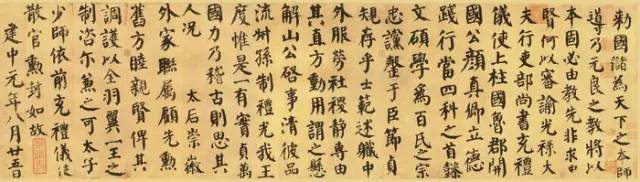 敕國儲為天下之本師
導乃元良之教將以
本固必由教先非求中
賢何以審諭光祿大
夫行吏部尚書充禮
儀使上柱國魯郡開
國公顏真卿立德
踐行當四科之首懿
文碩學為百氏之宗
忠讜罄于臣節貞
規存乎士範述職中
外服勞社稷靜專由
其直方動用謂之懸
解山公啓事清彼品
流叔孫制禮光我王
度惟是一有實貞萬
國力乃稽古則思其
人況 太后崇徽
外家聯屬顧先勳
舊方睦親賢俾其
調護以全羽翼一王之
制咨尔兼之可太子
少師依前充禮儀使
散官勳封如故
建中元年八月廿五日